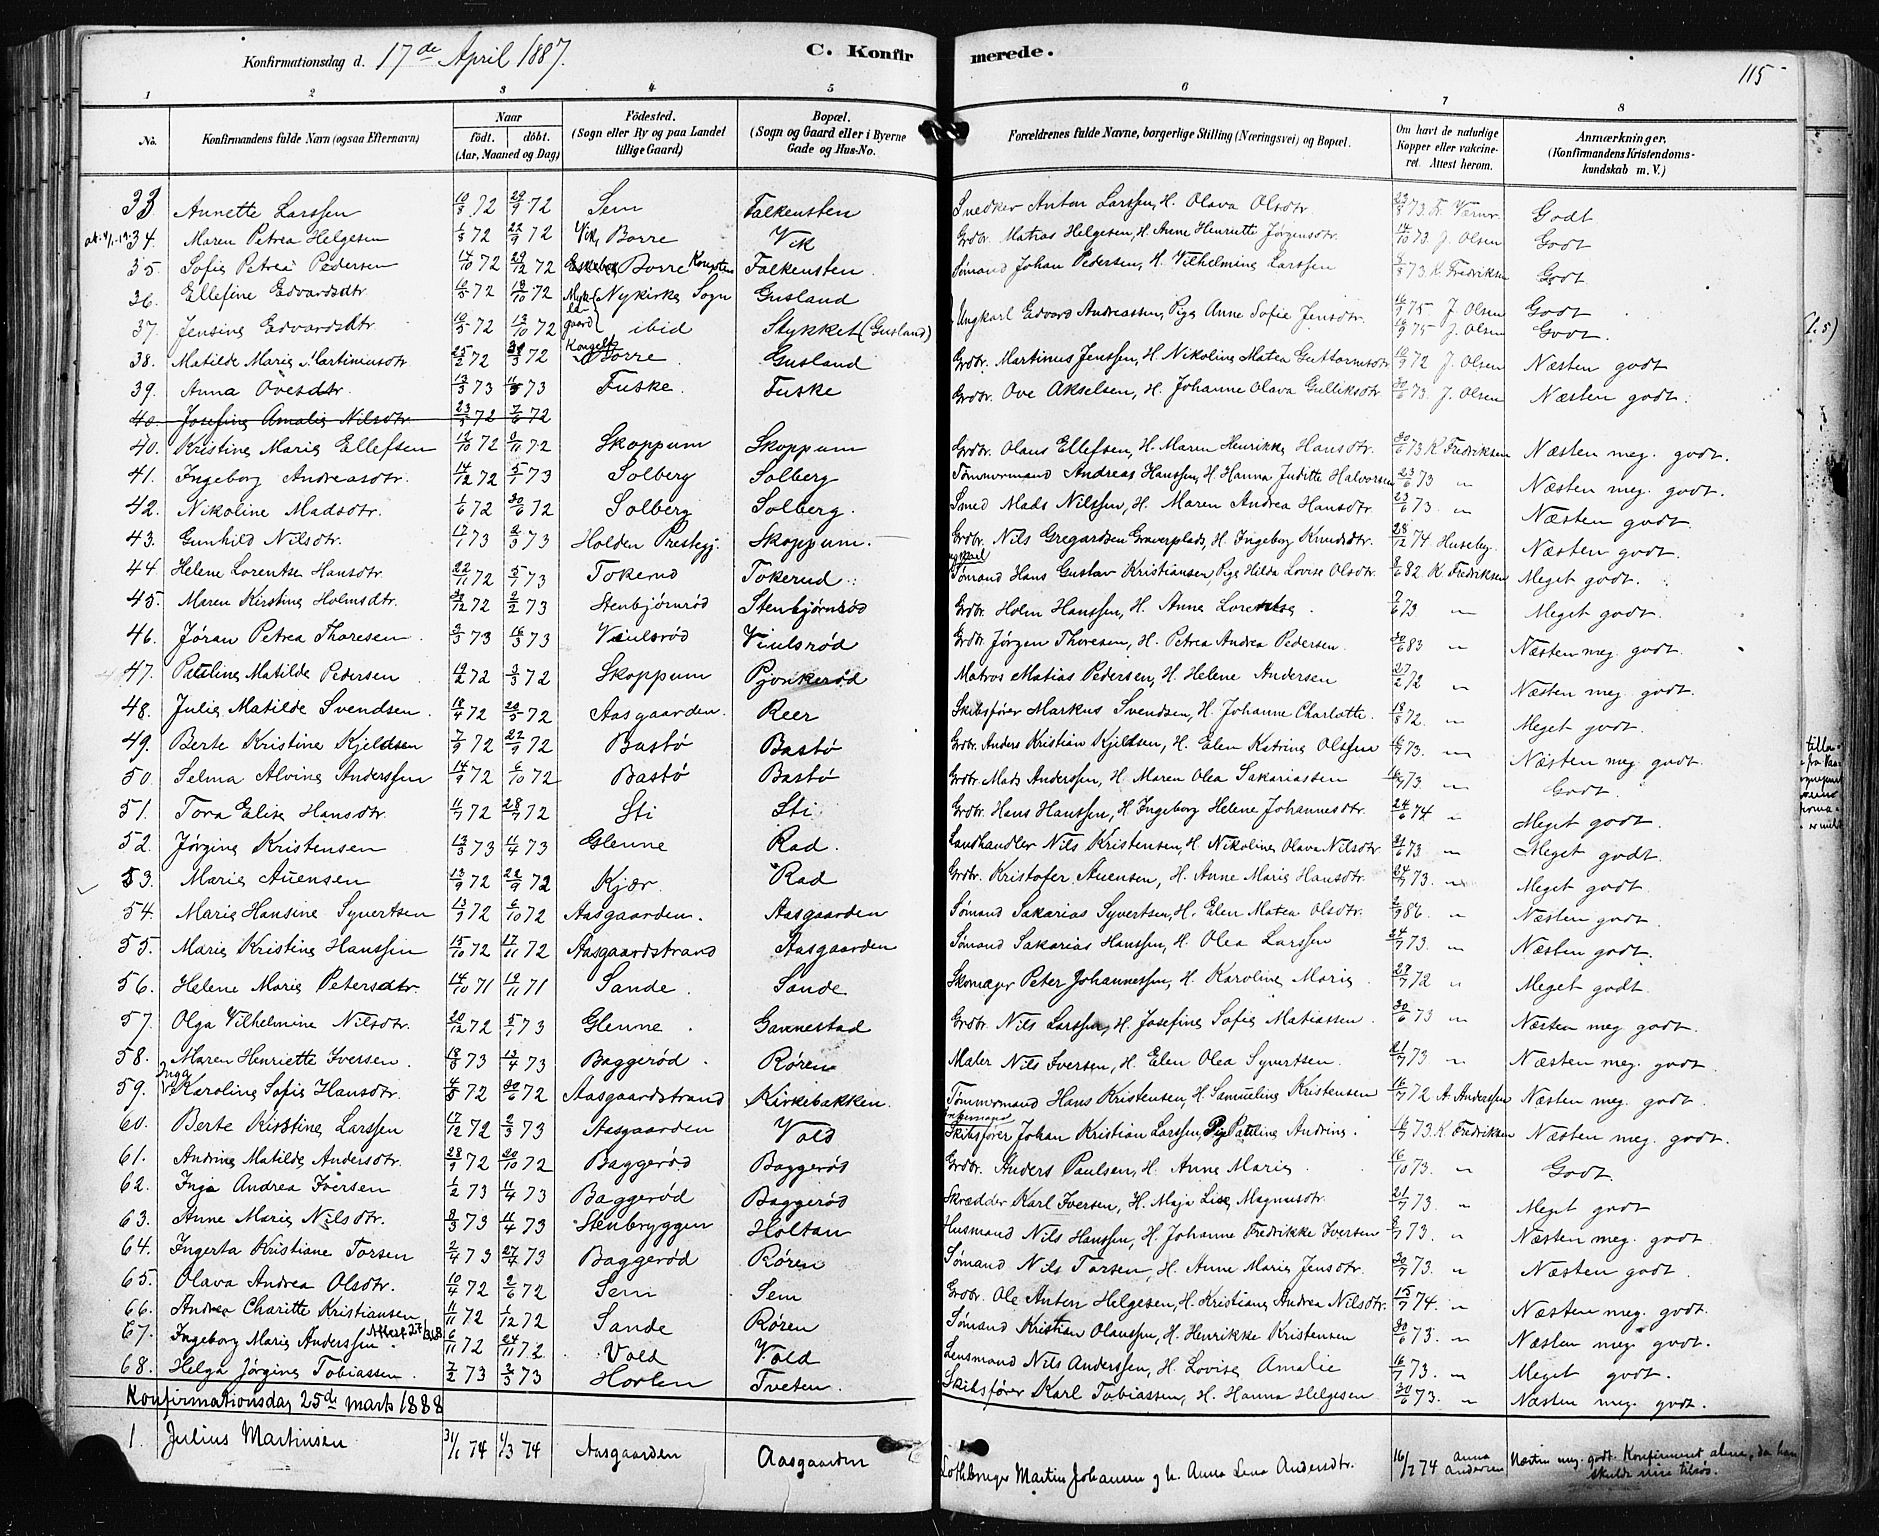 Konfirmationsdag d. 17de April 1887. C. Konfirmerede. 115
1 2 3 4 5 6 7 8
No. Konfirmandens fulde Navn (ogsaa Efternavn) Naar født. døbt. (Aar, Maaned og Dag) Fødested. (Sogn eller By og paa Landet tillige Gaard) Bopæl. (Sogn og Gaard eller i Byerne Gade og Hus-No. Forældrenes fulde Navne, borgerlige Stilling (Næringsvei) og Bopæl. Om havt de naturlige Kopper eller vakcineret. Attest herom. Anmærkninger, (Konfirmandens Kristendomskundskab m. V.)
33 Annette Larssen 10/3 72 29/9 72 Sem Falkensten Snedker Anton Larssen, H. Olava Olsdtr 73 Godt
34. Maren Petrea Helgesen 72 22/9 72 Vik, Borre Vik Grdbr. Matias Helgesen, H. Anne Henriette Jørgensdtr. 14/10 73. J. Olsen Godt
35. Sofie Petrea Pedersen 14/10 72 29/12 72 Borre Falkensten. Sømand Johan Pedersen, H. Vilhelmine Larssen 73 K Fredriksen Godt
36. Ellefine Edvardsdtr. 72 13/10 72 Nykirke Sogn Gusland Ungkarl Edvard Andreassen, Pige Anne Sofie Jensdtr. 75 J. Olsen Godt
37. Jensine Edvardsdtr. 72 13/10 72 ibid Stykket (Gusland) 75 J. Olsen Godt.
38. Matilde Marie Martiniusdtr. 25/2 72 72 Borre Gusland Grdbr. Martinus Jenssen, H. Nikoline Matea Guttormsdtr 72 J. Olsen Næsten godt
39. Anna Ovesdtr. 13/3 73 73 Fuske. Fuske Grdbr. Ove Akselsen, H. Johanne Olava Gulliksdtr 73. J. Olsen Næsten godt.
40. Josefine Amalie Nilsdtr. 23/3 72 7/6 72
40. Kristine Marie Ellefsen 72 72 Skoppum Skoppum Grdbr. Olaus Ellefsen, H. Maren Henrikke Hansdtr. 73 K Fredriksen Næsten meg. godt.
41. Ingeborg Andreasdtr. 14/12 72 5/1 73 Solberg Solberg Tømmermand Andreas Hanssen, H. Hanna Juditte Halvorsen 23/6 73 " Næsten meg. godt.
42. Nikoline Madsdtr. 1/6 72 30/6 72 Solberg Solberg. Smed Mads Nilssen, H. Maren Andrea Hansdtr. 23/6 73. " Næsten godt.
43. Gunhild Nilsdtr. 73 73 Holden Prestegj. Skoppum. Grdbr. Nils Gregardsen Graverplads, H. Ingeborg Knudsdtr. 28/12 74 Huseby. Næsten godt.
44. Helene Lorentse Hansdtr. 22/11 72 5/1 73 Tokerud Tokerud. Sømand Hans Gustav Kristiansen, Pige Hilda Lovise Olsdtr. 82 K Fredriksen Meget godt.
45. Maren Kirstine Holmsdtr. 72 2/2 73 Stenbjørnrød Stenbjørnrød Grdbr. Holm Hanssen, H. Anne Lorentse. 7/6 73 " Meget godt.
46. Jøran Petrea Thoresen 2/3 73 16/3 73 Viulsrød Viulsrød Grdbr. Jørgen Thoresen, H. Petrea Andrea Pedersen. 30/6 83 " Næsten meg. godt.
47. Pauline Matilde Pedersen 72 3/3 72 Skoppum Pjonkerød Matros Matias Pedersen, H. Helene Andersen 27/2 72 " Næsten meg. godt.
48. Julie Matilde Svendsen. 18/4 72 20/5 72 Aasgaarden. Reer Skibsfører Markus Svendsen, H. Johanne Charlotte. 18/8 72. " Meget godt.
49. Berte Kristine Kjeldsen 7/9 72 22/9 72 Bastø Bastø Grdbr. Anders Kristian Kjeldsen, H. Elen Katrine Olssen 73. " Næsten meg. godt.
50. Selma Alvine Anderssen 14/9 72 6/10 72 Bastø Bastø Grdbr. Mats Anderssen, H. Maren Olea Sakariassen 73. " Godt.
51. Tora Elise Hansdtr. 72 28/7 72 Sti Sti Grdbr. Hans Hanssen, H. Ingeborg Helene Johannesdtr. 24/6 74 " Meget godt.
52. Jørgine Kristensen 13/3 73 11/4 73 Glenne Rad. Landhandler Nils Kristensen, H. Nikoline Olava Nilsdtr. 73 " Meget godt.
53. Marie Auensen 13/9 72 22/9 72 Kjær. Rad Grdbr. Kristofer Auensen, H. Anne Marie Hansdtr. 24/7 73. " Meget godt.
54. Marie Hansine Syvertsen 13/9 72 6/10 72 Aasgaarden. Aasgaarden Sømand Sakarias Syvertsen, H. Elen Matea Olsdtr. 86. " Næsten godt.
55. Marie Kristine Hanssen 15/10 72 17/11 72 Aasgaardstrand Aasgaarden Sømand Sakarias Hanssen, H. Olea Larssen 24/7 73. " Næsten godt.
56. Helene Marie Petersdtr. 14/10 71 19/11 71 Sande. Sande Skomager Peter Johannessen, H. Karoline Marie. 27/7 72 " Meget godt.
57. Olga Vilhelmine Nilsdtr. 20/12 72 5/1 73 Glenne. Gannestad Grdbr. Nils Larssen, H. Josefine Sofie Matiassen 30/6 73 " Næsten meg. godt.
58. Maren Henriette Iversen. 73 13/4 73 Baggerød. Røren Maler Nils Iversen, H. Elen Olea Syvertsen. 21/7 73 " Næsten meg. godt.
59. Inga Karoline Sofie Hansdtr. 72 30/6 72 Aasgaardstrand Kirkebakken. Tømmermand Hans Kristensen, H. Samueline Kristensen 16/7 72 A Anderssen Næsten meg. godt.
60. Berte Kirstine Larssen 17/12 72 2/3 73 Aasgaarden Vold Skibsfører Johan Kristian Larssen, Pig Pauline Andrine. 73. K Fredriksen Næsten meg. godt.
61. Andrine Matilde Andersdtr. 28/9 72 20/10 72 Baggerød Baggerød Grdbr. Anders Paulsen, H. Anne Marie. 16/10 73. " Godt.
62. Inga Andrea Iversen 1/2 73 11/4 73 Baggerød Baggerød Skrædder Karl Iversen, H. Maja Lise Magnusdtr. 21/7 73. " Meget godt
63. Anne Marie Nilsdtr. 8/3 73 11/4 73 Stenbryggen Holtan Husmand Nils Hanssen, H. Johanne Fredrikke Iversen 73. " Næsten meg. godt.
64. Ingerta Kristiane Torsen 2/4 73 27/4 73 Baggerød Røren Sømand Nils Torsen, H. Anne Marie Jensdtr. 73. " Næsten godt.
65. Olava Andrea Olsdtr. 10/4 72 2/6 72 Sem Sem Grdbr. Ole Anton Helgesen, H. Kristiane Andrea Nilsdtr. 15/7 74. " Næsten meg. godt.
66. Andrea Charitte Kristiansen 72 1/12 72 Sande Røren Sømand Kristian Olaussen, H. Henrikke Kristensen 30/6 73. " Næsten meg. godt.
67. Ingeborg Marie Anderssen. 6/11 72 24/11 72 Vold Vold Lensmand Nils Anderssen, H. Lovise Amalie 73. " Meget godt.
68. Helga Jørgine Tobiassen. 7/2 73 2/3 73 Horten Tveten. Skibsfører Karl Tobiassen, H. Hanna Helgesen 30/6 73. " Næsten meg. godt.
Konfirmationsdag 25de marts 1888
1. Julius Martinsen 31/1 74 1/3 74 Aasgaarden Aasgaarden Martin Johansen og h. Anna Lena Andersdtr. 16/7 74 Anna Andersen Næsten meg. godt. Konfirmeret alene, da han skulde reise tilsøs.